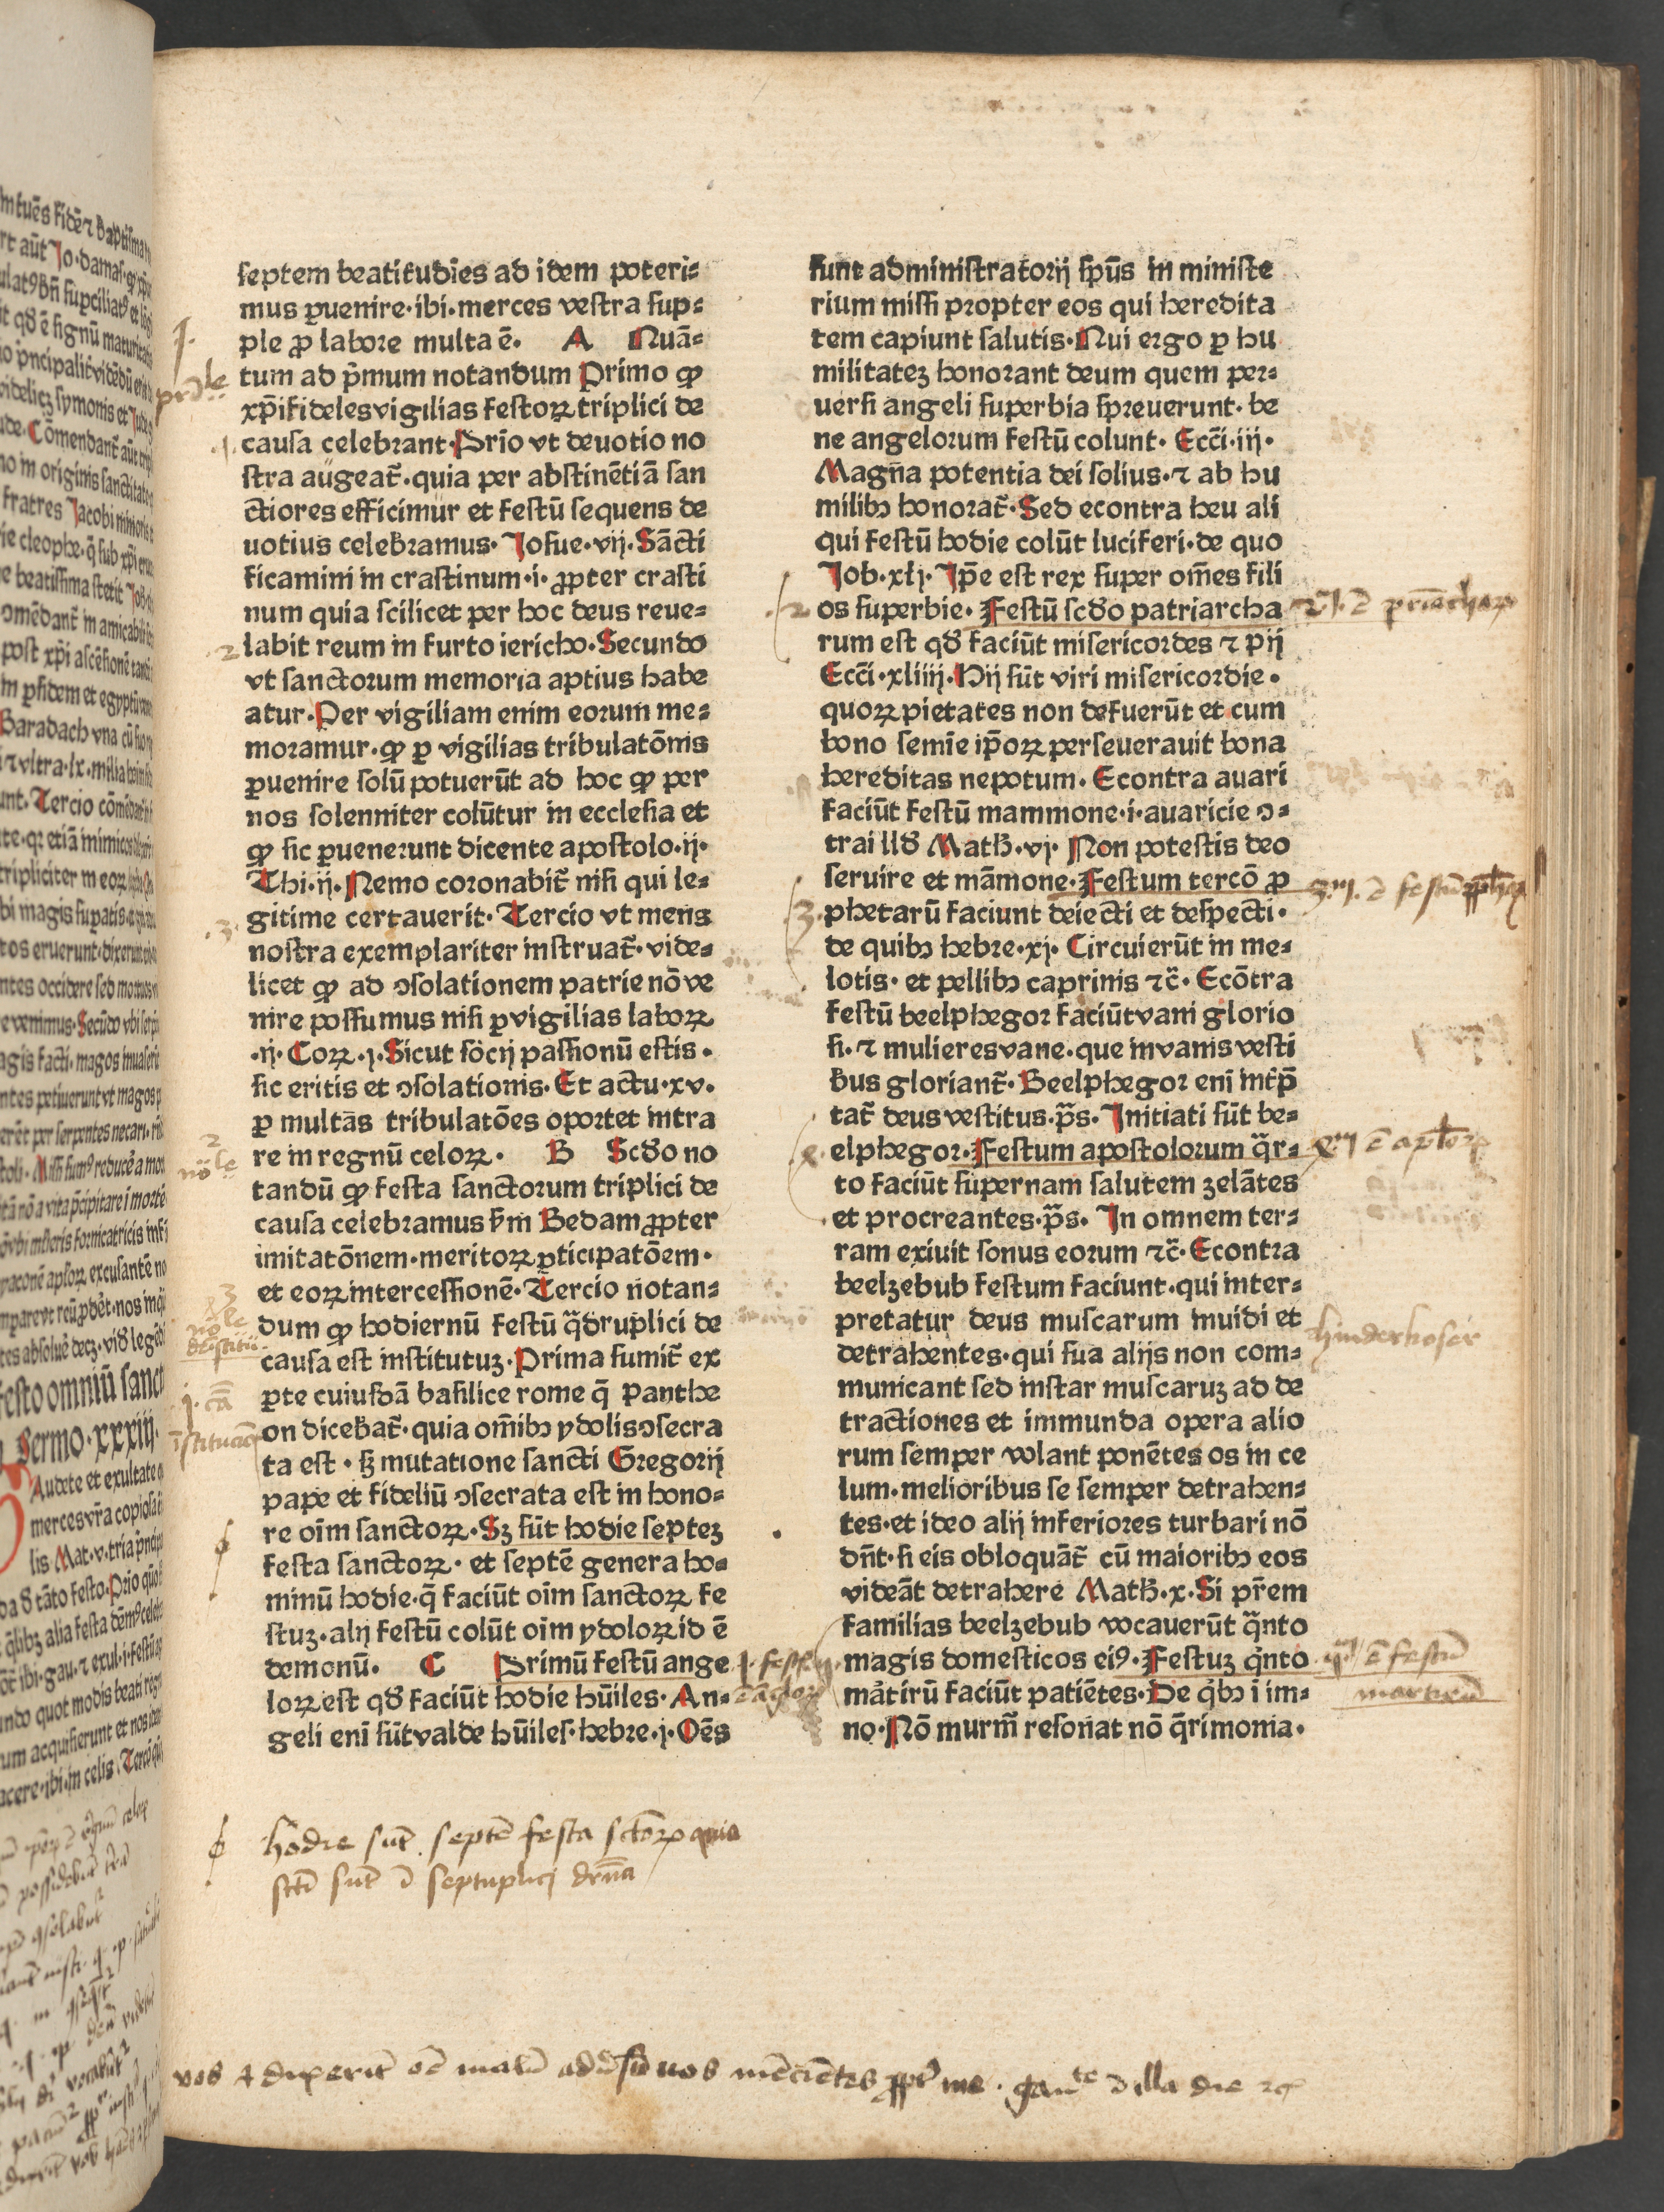 ſeptem beatitudīes ad idem poteri⸗
mus ꝑuenire·ibi·merces veſtra ſup⸗
ple ꝓ labore multa ē· A Nuā⸗
tum ad pͫmum notandum Primo ꝙ
xp̄ifideles vigilias feſtoꝝ triplici de
cauſa celebrant·Prīo vt deuotio no
ſtra augeat̄·quia per abſtinētiā ſan
ctiores efficimur et feſtū ſequens de
uotius celebramus·Joſue·vij·Sācti
ficamini in craſtinum·i·ꝓpter craſti
num quia ſcilicet per hoc deus reue⸗
labit reum in furto iericho·Secundo
vt ſanctorum memoria aptius habe
atur·Per vigiliam enim eorum me⸗
moramur·ꝙ ꝑ vigilias tribulatōnis
ꝑuenire ſolū potuerūt ad hoc ꝙ per
nos ſolenniter colūtur in eccleſia et
ꝙ ſic ꝑuenerunt dicente apoſtolo·ij·
Thi·ij·Nemo coronabit̄ niſi qui le⸗
gitime certauerit·Tercio vt mens
noſtra exemplariter inſtruat̄·vide⸗
licet ꝙ ad ↄſolationem patrie nō ve
nire poſſumus niſi ꝑ vigilias laboꝝ
·ij·Coꝝ·j·Sicut ſocij paſſionū eſtis·
ſic eritis et ↄſolationis·Et actu·xv·
ꝑ multas tribulatōes oportet intra
re in regnū celoꝝ· B Scd̄o no
tandū ꝙ feſta ſanctorum triplici de
cauſa celebramus ẜm Bedam ꝓpter
imitatōnem·meritoꝝ ꝑticipatōem·
et eoꝝ interceſſionē·Tercio notan⸗
dum ꝙ hodiernū feſtū q̄druplici de
cauſa eſt inſtitutuꝫ·Prima ſumit̄ ex
ꝑte cuiuſdā baſilice rome q̄ panthe
on dicebat̄·quia om̄ibꝫ ydolis ↄſecra
ta eſt·ſꝫ mutatione ſancti Gregorij
pape et fideliū ↄſecrata eſt in hono⸗
re oīm ſanctoꝝ·Sꝫ ſūt hodie ſepteꝫ
feſta ſanctoꝝ·et ſeptē genera ho⸗
minū hodie·q̄ faciūt oīm ſanctoꝝ fe
ſtuꝫ·alij feſtū colūt oīm ydoloꝝ id ē
demonū· C Primū feſtū ange
loꝝ eſt qd̄ faciūt hodie hūiles·An⸗
geli enī ſūt valde hūileſ·hebre·j·Oēs
ſunt adminiſtratorij ſpūs in miniſte
rium miſſi propter eos qui heredita
tem capiunt ſalutis·Nui ergo ꝑ hu
militateꝫ honorant deum quem per⸗
uerſi angeli ſuperbia ſpreuerunt·be
ne angelorum feſtū colunt·Eccī·iij·
Magna potentia dei ſolius·⁊ ab hu
milibꝫ honorat̄·Sed econtra heu ali
qui feſtū hodie colūt luciferi·de quo
Job·xlj·Ip̄e eſt rex ſuper om̄es fili
os ſuperbie·Feſtū ſcd̄o patriarcha
rum eſt qd̄ faciūt miſericordes ⁊ pij
Eccī·xliiij·Hij ſūt viri miſericordie·
quoꝝ pietates non defuerūt et cum
bono ſemīe ip̄oꝝ perſeuerauit bona
hereditas nepotum·Econtra auari
faciūt feſtū mammone·i·auaricie ↄ⸗
tra illd̄ Math·vj·Non poteſtis deo
ſeruire et māmone·Feſtum tercō ꝓ
phetarū faciunt deiecti et deſpecti·
de quibꝫ hebre·xj·Circuierūt in me⸗
lotis·et pellibꝫ caprinis ⁊c̄·Ecōtra
feſtū beelphegor faciūt vani glorio
ſi·⁊ mulieres vane·que in vanis veſti
bus gloriant̄·Beelphegor enī int̄p̄
tat̄ deus veſtitus·p̄s·Initiati ſūt be⸗
elphegor·Feſtum apoſtolorum q̄r⸗
to faciūt ſupernam ſalutem zelātes
et procreantes·p̄s·In omnem ter⸗
ram exiuit ſonus eorum ⁊c̄·Econtra
beelzebub feſtum faciunt·qui inter⸗
pretatur deus muſcarum inuidi et
detrahentes·qui ſua alijs non com⸗
municant ſed inſtar muſcaruꝫ ad de
tractiones et immunda opera alio
rum ſemper volant ponētes os in ce
lum·melioribus ſe ſemper detrahen⸗
tes·et ideo alij inferiores turbari nō
dn̄t·ſi eis obloquāt̄ cū maioribꝫ eos
videāt detrahere Math·x·Si pr̄em
familias beelzebub vocauerūt q̄nto
magis domeſticos eiꝰ·Feſtuꝫ q̇nto
mȧtirū faciūt patiētes·De q̇bꝫ i im⸗
no·Nō murm̄ reſonat nō q̄rimonia·
hodie ſūt ſeptē feſta ſctoꝝ quia
ſcti ſūt ī ſeptuplici drn̄a
vos ⁊ dixerīt oē malū adūſū uos mēciētes ꝓpt̄ me · gaudete ī illa die ⁊c